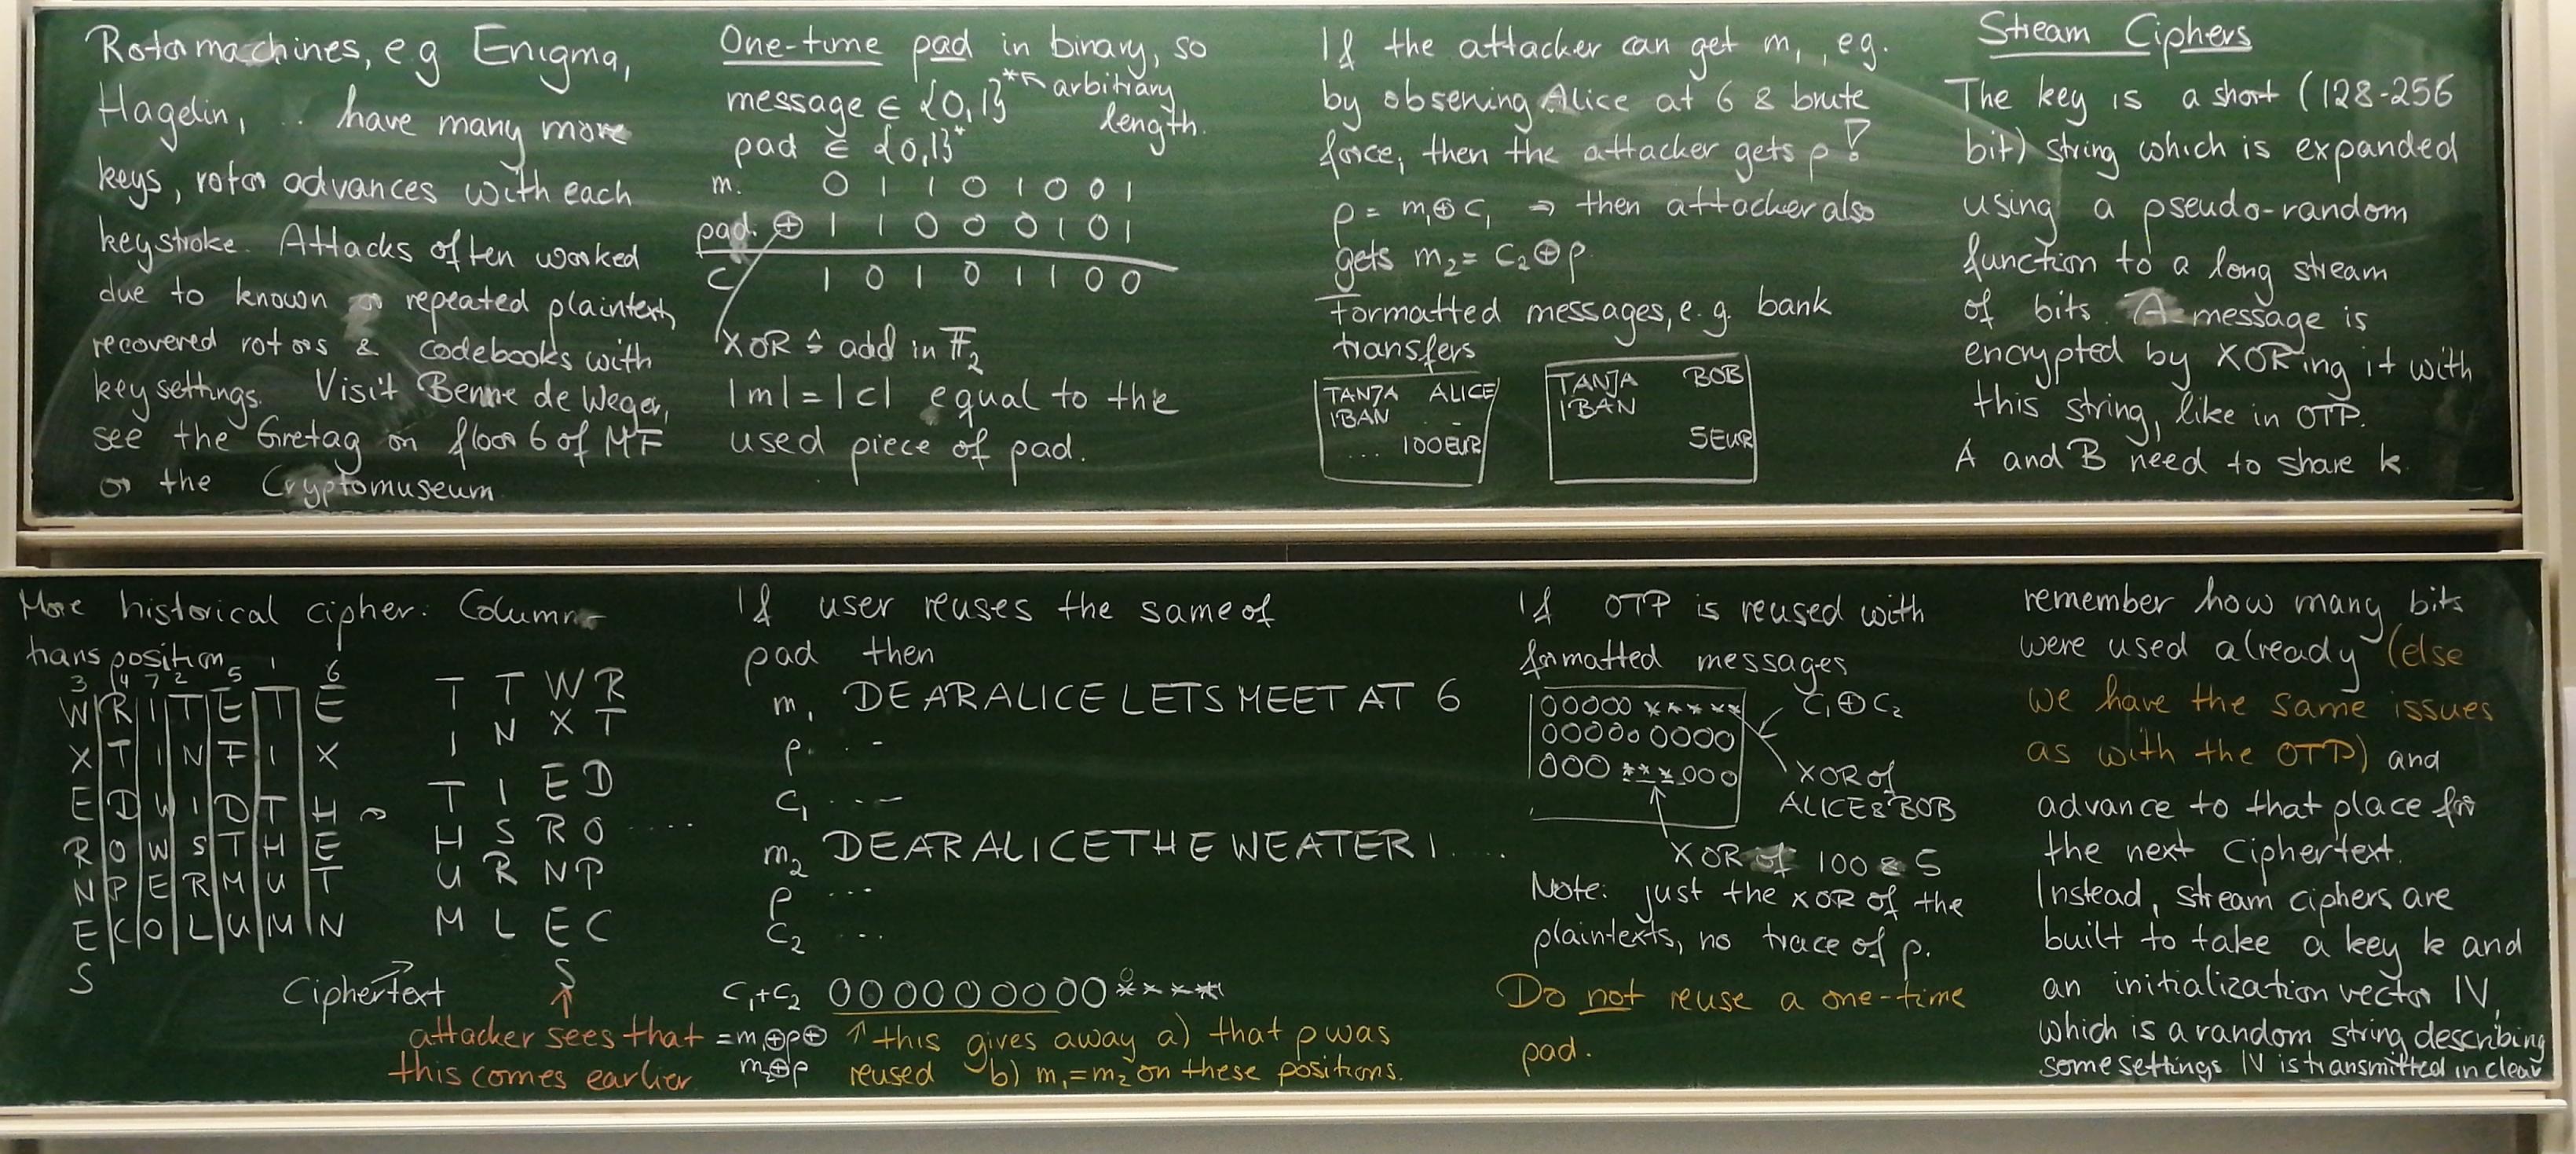 Rotormachines, e.g Enigma,
Hagelin, .. have many more
keys, rotor advances with each
keystroke. Attacks often worked
due to known or repeated plaintext,
recovered rotors & codebooks with
key settings. Visit Benne de Weger,
see the Gretag on floor 6 of MF
or the Cryptomuseum.
One-time pad in binary, so
message ∈ {0,1}* ↖ arbitriary
length.
pad ∈ {0,1}*
m. 0 1 1 0 1 0 0 1
pad. ⊕ 1 1 0 0 0 1 0 1
c 1 0 1 0 1 1 0 0
XOR ≙ add in 𝔽₂
|m| = |c| equal to the
used piece of pad.
If the attacker can get m₁, eg.
by observing Alice at 6 & brute
force, then the attacker gets p!
p = m₁⊕c₁ ⇒ then attacker also
gets m₂ = c₂⊕p
Formatted messages, e.g. bank
transfers
TANJA ALICE
IBAN ..
... 100EUR
TANJA BOB
IBAN
5EUR
Stream Ciphers
The key is a short (128-256
bit) string which is expanded
using a pseudo-random
function to a long stream
of bits. A message is
encrypted by XORing it with
this string, like in OTP.
A and B need to share k
More historical cipher: Column
transposition
3 4 7 2 5 1 6
W R I T E T E
X T I N F I X
E D W I D T H
R O W S T H E
N P E R M U T
E C O L U M N
S
T T W R
I N X T
T I E D
H S R O ....
U R N P
M L E C
S
Ciphertext
↑
attacker sees that
this comes earlier
If user reuses the same of
pad then
m₁ DEARALICELETSMEETAT 6
p . . -
c₁ . . . —
m₂ DEARALICETHEWEATERI ....
p ...
c₂ ...
c₁+c₂ 000000000*****
= m₁⊕p⊕
m₂⊕p
↑ this gives away a) that p was
reused b) m₁=m₂ on these positions.
If OTP is reused with
formatted messages
00000 *****
00000 0000
000 *** 000
c₁⊕c₂
XOR of
ALICE & BOB
XOR of 100 & 5
Note: just the XOR of the
plaintexts, no trace of p.
Do not reuse a one-time
pad.
remember how many bits
were used already (else
we have the same issues
as with the OTP) and
advance to that place for
the next ciphertext.
Instead, stream ciphers are
built to take a key k and
an initialization vector IV,
which is a random string describing
some settings. IV is transmitted in clear